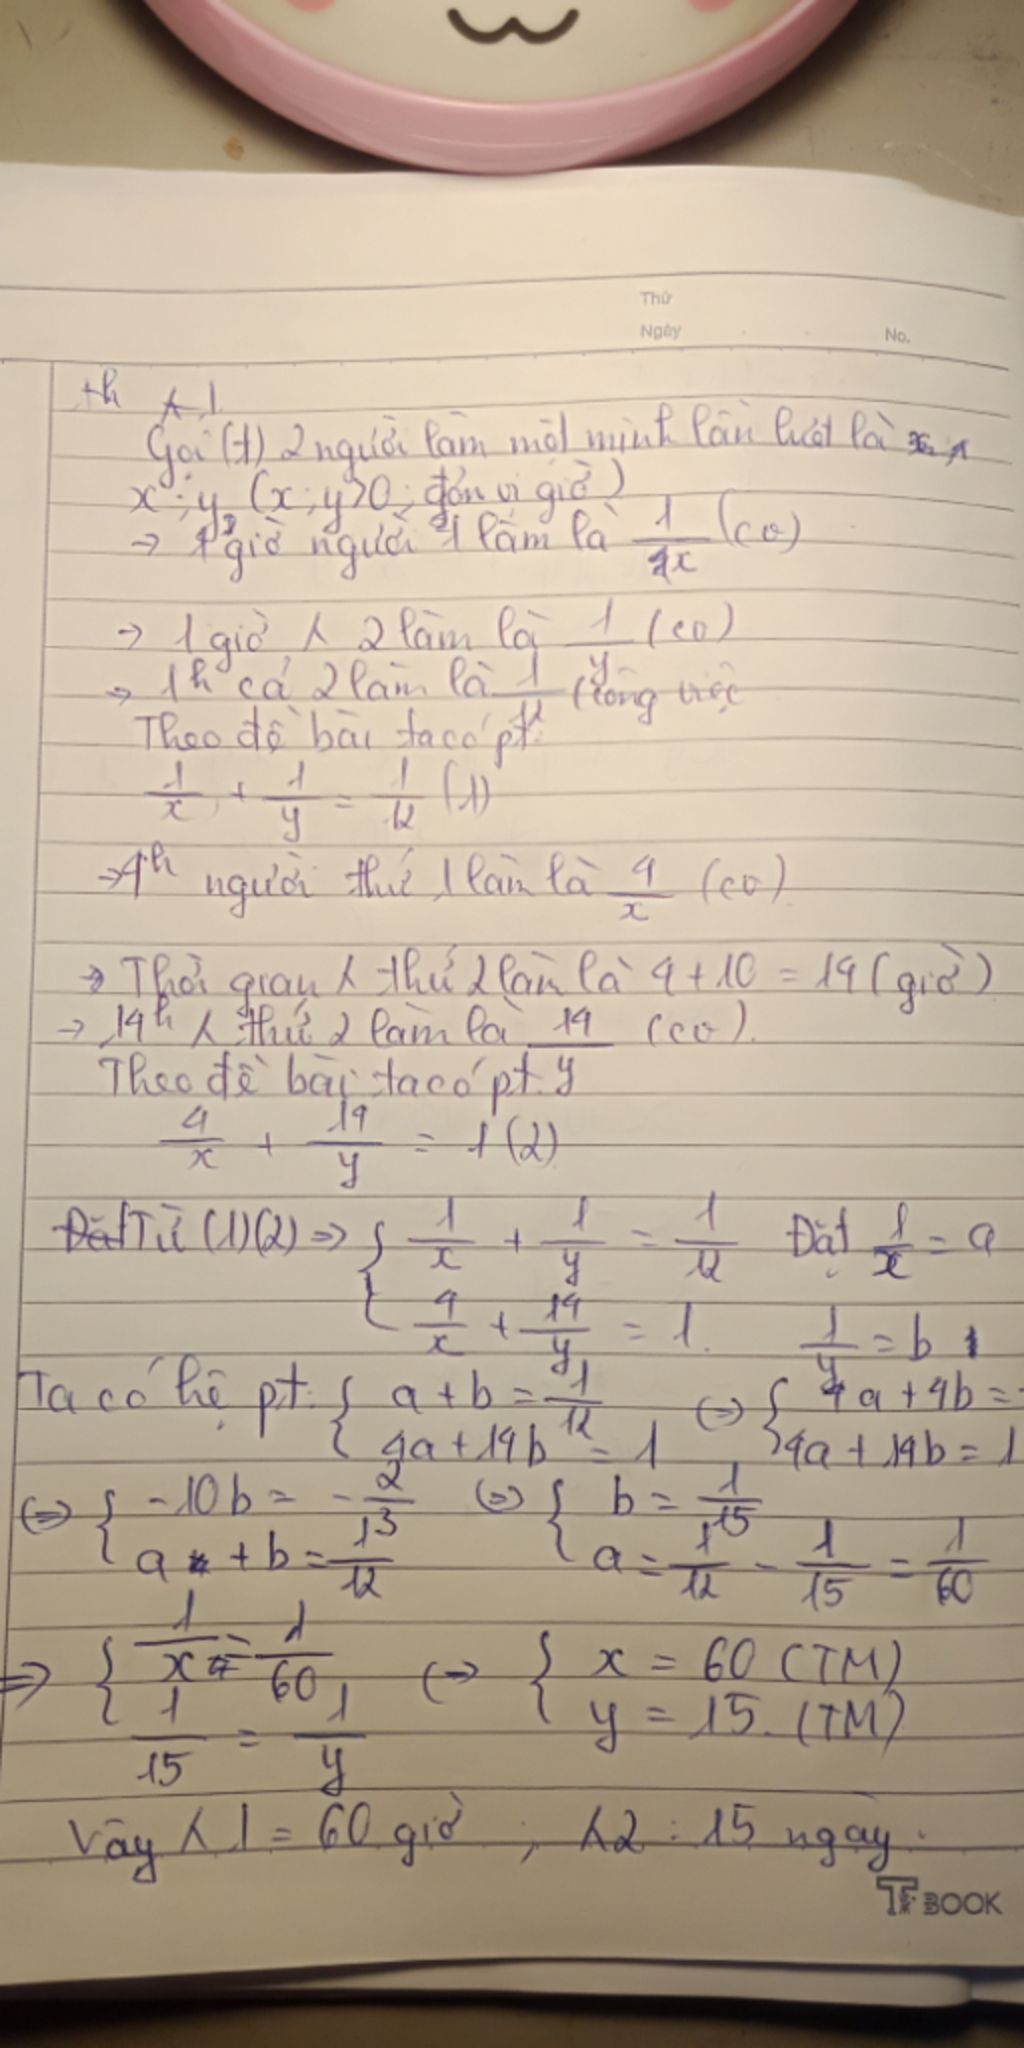 Thứ
Ngày No.
th
Gọi (t) 2 người làm một mình lần lượt là
x; y (x; y>0; đơn vị giờ)
→ 1 giờ người 1 làm là 1/x (cv)
→ 1 giờ 2 làm là 1/y (cv)
→ 1h cả 2 làm là 1/12 (công việc
Theo đề bài ta có pt:
1/x + 1/y = 1/12 (1)
→ 4h người thứ 1 làm là 4/x (cv)
→ Thời gian thứ 2 làm là 4+10 = 14 (giờ)
→ 14h thứ 2 làm là 14/y (cv).
Theo đề bài ta có pt.
4/x + 14/y = 1 (2)
Từ (1)(2) => { 1/x + 1/y = 1/12 Đặt 1/x = a
4/x + 14/y = 1. 1/y = b
Ta có hệ pt: { a + b = 1/12 (=) { 4a + 4b =
4a + 14b = 1 4a + 14b = 1
(=) { -10b = -2/3 (=) { b = 1/15
a + b = 1/12 a = 1/12 - 1/15 = 1/60
=> { 1/x = 1/60 (=) { x = 60 (TM)
1/15 = 1/y y = 15. (TM)
Vậy 1 = 60 giờ ; 2 : 15 ngày.
TFBOOK